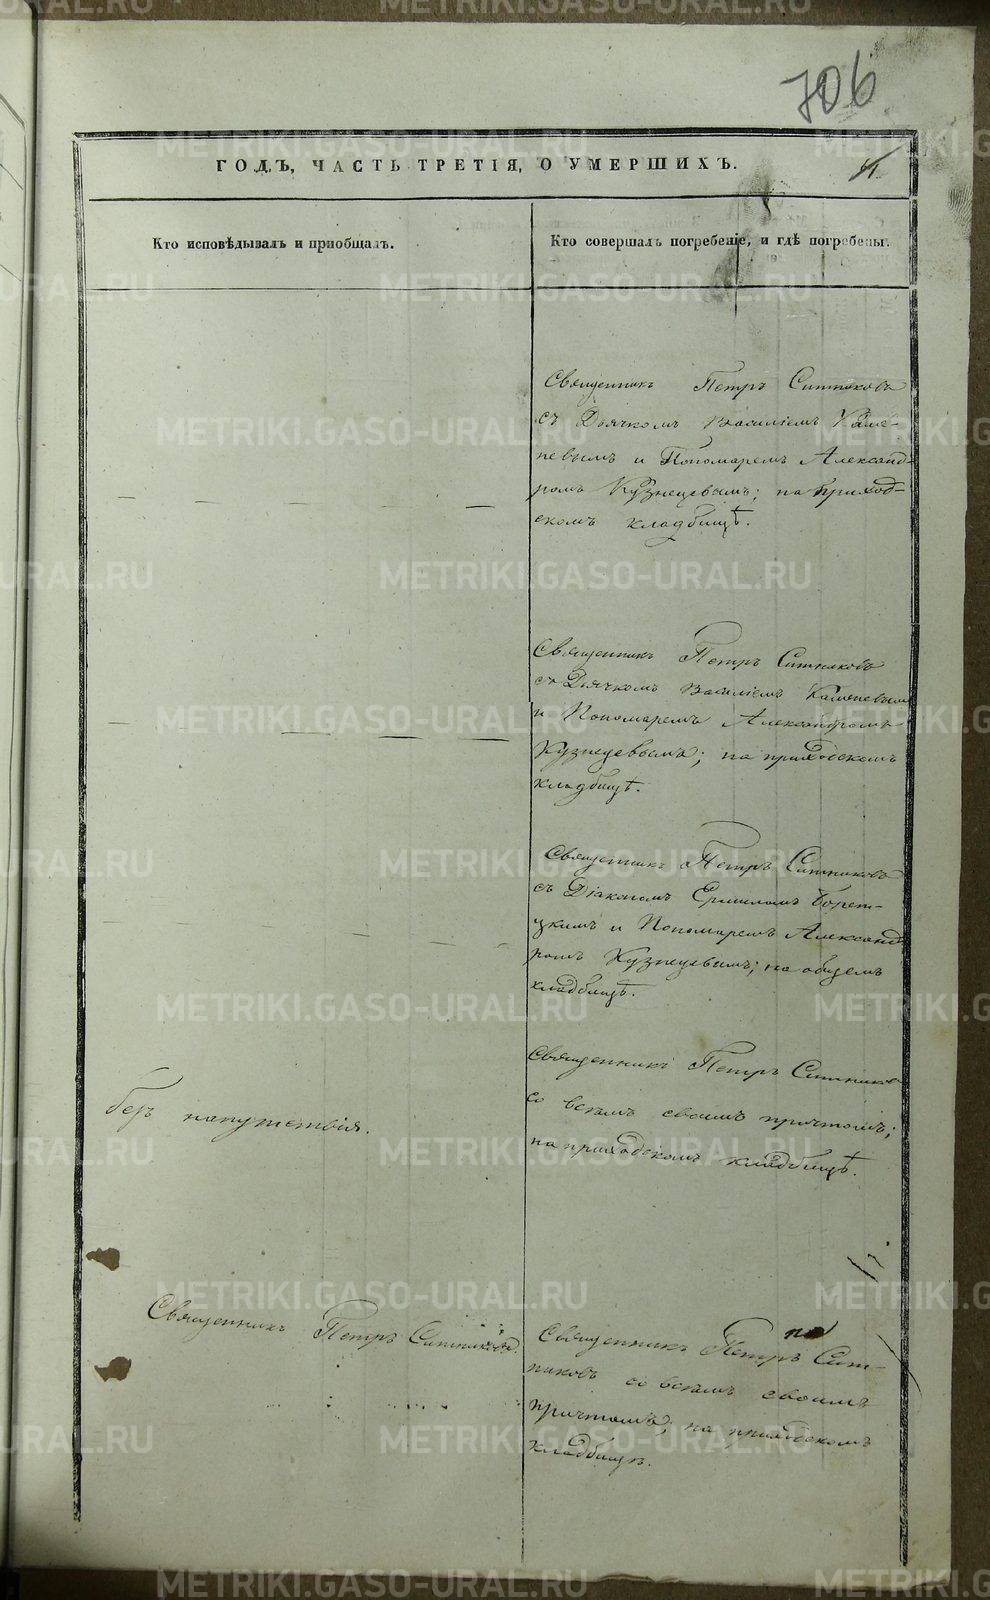 706
ГОДЪ, ЧАСТЬ ТРЕТІЯ, О УМЕРШИХЪ.
Кто исповѣдывалъ и пріобщалъ.
Кто совершалъ погребеніе, и гдѣ погребены.
Священникъ Петръ Ситниковъ
съ Дьячкомъ Василіемъ Каме-
невымъ и Пономаремъ Александ-
ромъ Кузнецевымъ; на приход-
скомъ кладбищѣ.
Священникъ Петръ Ситниковъ
съ Дьячкомъ Василіемъ Каменевымъ
и Пономаремъ Александромъ
Кузнецевымъ; на приходскомъ
кладбищѣ.
Священникъ Петръ Ситниковъ
съ Діакономъ Ермиломъ Борет-
цкимъ и Пономаремъ Александ
ромъ Кузнецевымъ; на общемъ
кладбищѣ.
безъ напутствія.
Священникъ Петръ Ситников
со всѣмъ своимъ причтомъ;
на приходскомъ кладбищѣ.
Священникъ Петръ Ситниковъ.
Священникъ Петръ Сит-
никовъ со всѣмъ своимъ
причтомъ; на приходскомъ
кладбищѣ.
METRIKI.GASO-URAL.RU